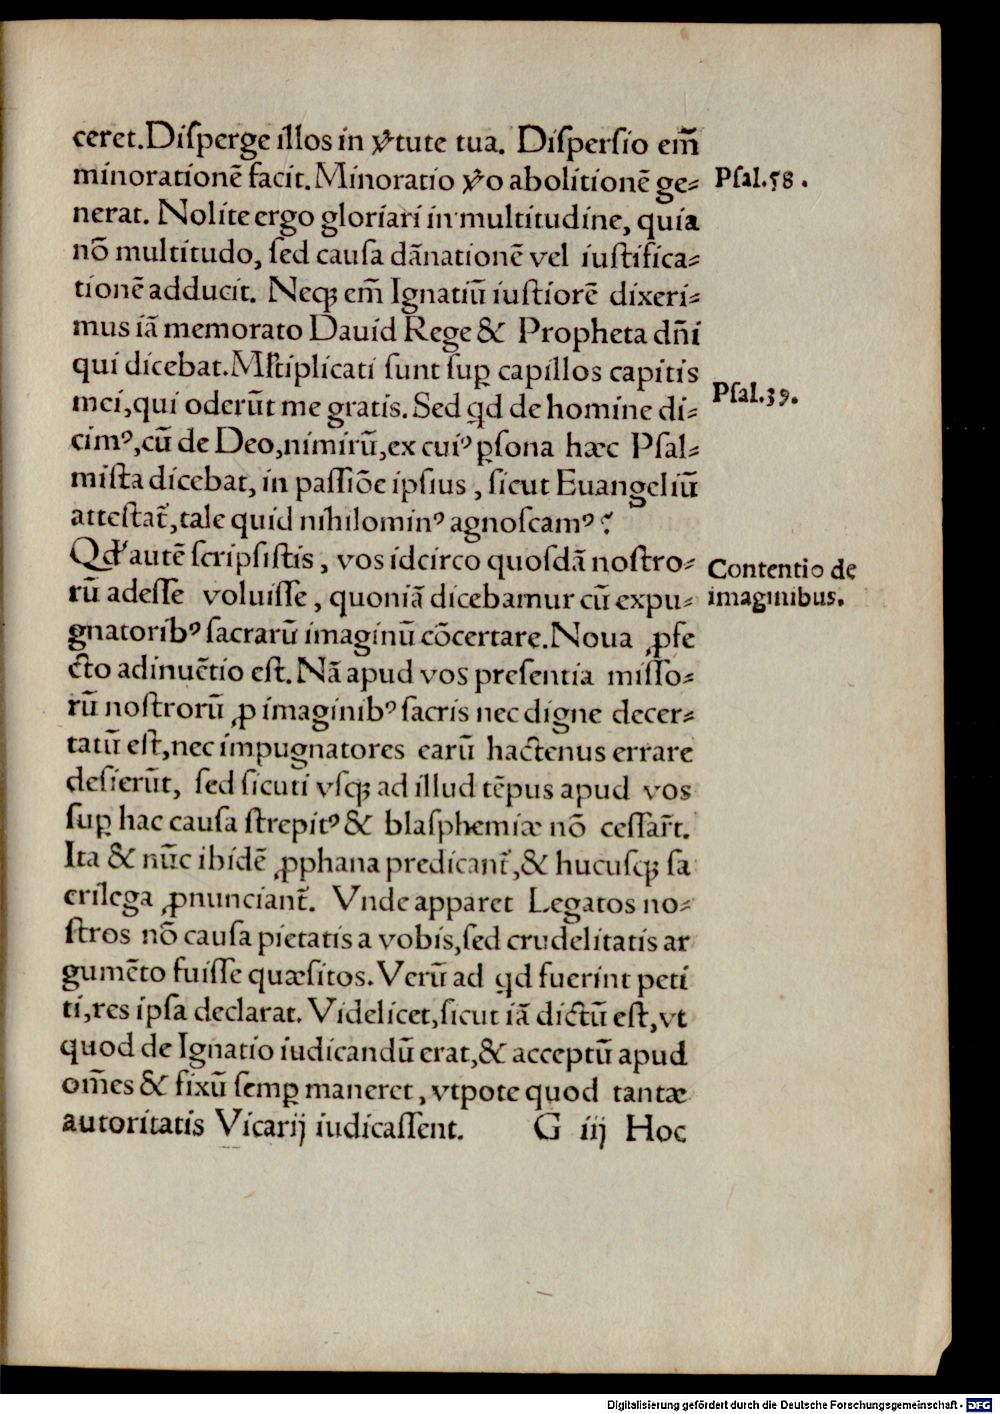 ceret.Diſperge illos in v̷tute tua. Diſperſio em̄
minorationē facit.Minoratio v̷o abolitionē ge⸗
Pſal.58.
nerat. Nolite ergo gloriari in multitudine, quia
nō multitudo, ſed cauſa dānationē vel iuſtifica⸗
tionē adducit. Neqꝫ em̄ Ignatiū iuſtiorē dixeri⸗
mus iā memorato Dauid Rege & Propheta dn̄i
qui dicebat.Mſtiplicati ſunt ſuꝑ capillos capitis
Pſal.39.
mei,qui oderūt me gratis. Sed qd de homine di⸗
cimꝰ,cū de Deo,nimirū,ex cuiꝰ ꝑſona hæc Pſal⸗
miſta dicebat, in paſſiōe ipſius, ſicut Euangeliū
atteſtat̄,tale quid nihilominꝰ agnoſcamꝰ?
Qd' autē ſcripſiſtis, vos idcirco quoſdā noſtro⸗
Contentio de
imaginibus.
rū adeſſe voluiſſe, quoniā dicebamur cū expu⸗
gnatoribꝰ ſacrarū imaginū cōcertare.Noua ꝓfe
cto adinuētio eſt.Nā apud vos preſentia miſſo⸗
rū noſtrorū ꝓ imaginibꝰ ſacris nec digne decer⸗
tatū eſt,nec impugnatores earū hactenus errare
deſierūt, ſed ſicuti vſqꝫ ad illud tēpus apud vos
ſuꝑ hac cauſa ſtrepitꝰ & blaſphemiæ nō ceſſar̄t.
Ita & nūc ibidē ꝓphana predicant̄,& hucuſqꝫ ſa
crilega ꝓnunciant̄. Vnde apparet Legatos no⸗
ſtros nō cauſa pietatis a vobis,ſed crudelitatis ar
gumēto fuiſſe quæſitos.Verū ad qd fuerint peti
ti,res ipſa declarat.Videlicet,ſicut iā dictū eſt,vt
quod de Ignatio iudicandū erat,& acceptū apud
om̄es & fixū ſemꝑ maneret, vtpote quod tantæ
autoritatis Vicarij iudicaſſent. G iij Hoc
Digitalisierung gefördert durch die Deutsche Forschungsgemeinschaft - DFG